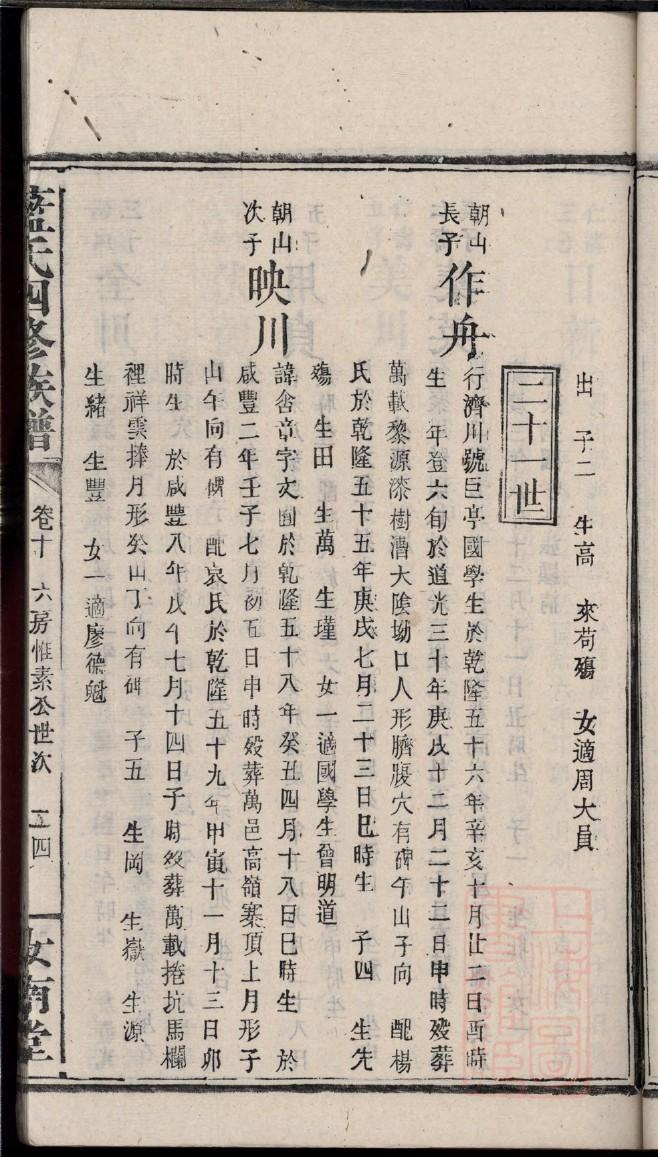 出 子二 生高 來苟殤 女適周大員
二十一世
朝山長子 作舟 行濟川號巨亭國學生於乾隆五十六年辛亥十月廿三日酉時
生 年登六旬於道光三十年庚戌十二月二十二日申時歿葬
萬載黎源漆樹漕大陰坳口人形臍腹穴有碑午山子向 配楊
氏於乾隆五十五年庚戌七月二十三日巳時生 子四 生先
殤 生田 生萬 生瑾 女一適國學生曾明道
朝山次子 映川 諱含章字文圃於乾隆五十八年癸丑四月十八日巳時生 於
咸豐二年壬子七月初五日申時歿葬萬邑高嶺寨頂上月形子
山午向有碑 配袁氏於乾隆五十九年甲寅十一月十三日卯
時生 於咸豐八年戊午七月十四日子時歿葬萬載捲坑馬欄
裡祥雲捧月形癸山丁向有碑 子五 生岡 生嶽 生源
生緒 生豐 女一適廖德魁
藍氏四修族譜 卷十 六房惟素公世次 五四 汝南堂